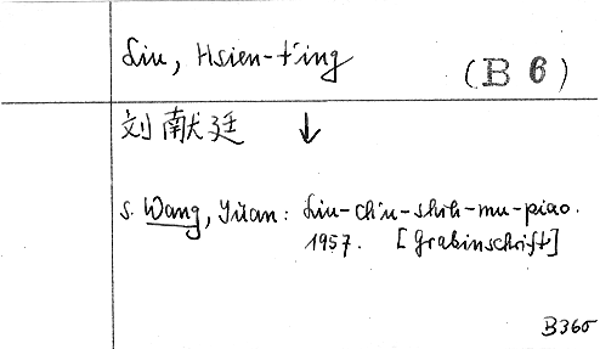 Liu, Hsien-t'ing
(B 6)
刘献廷 ↓
s. Wang, Yüan: Liu-chu-shih-mu-piao.
1957. [Grabinschrift]
B360